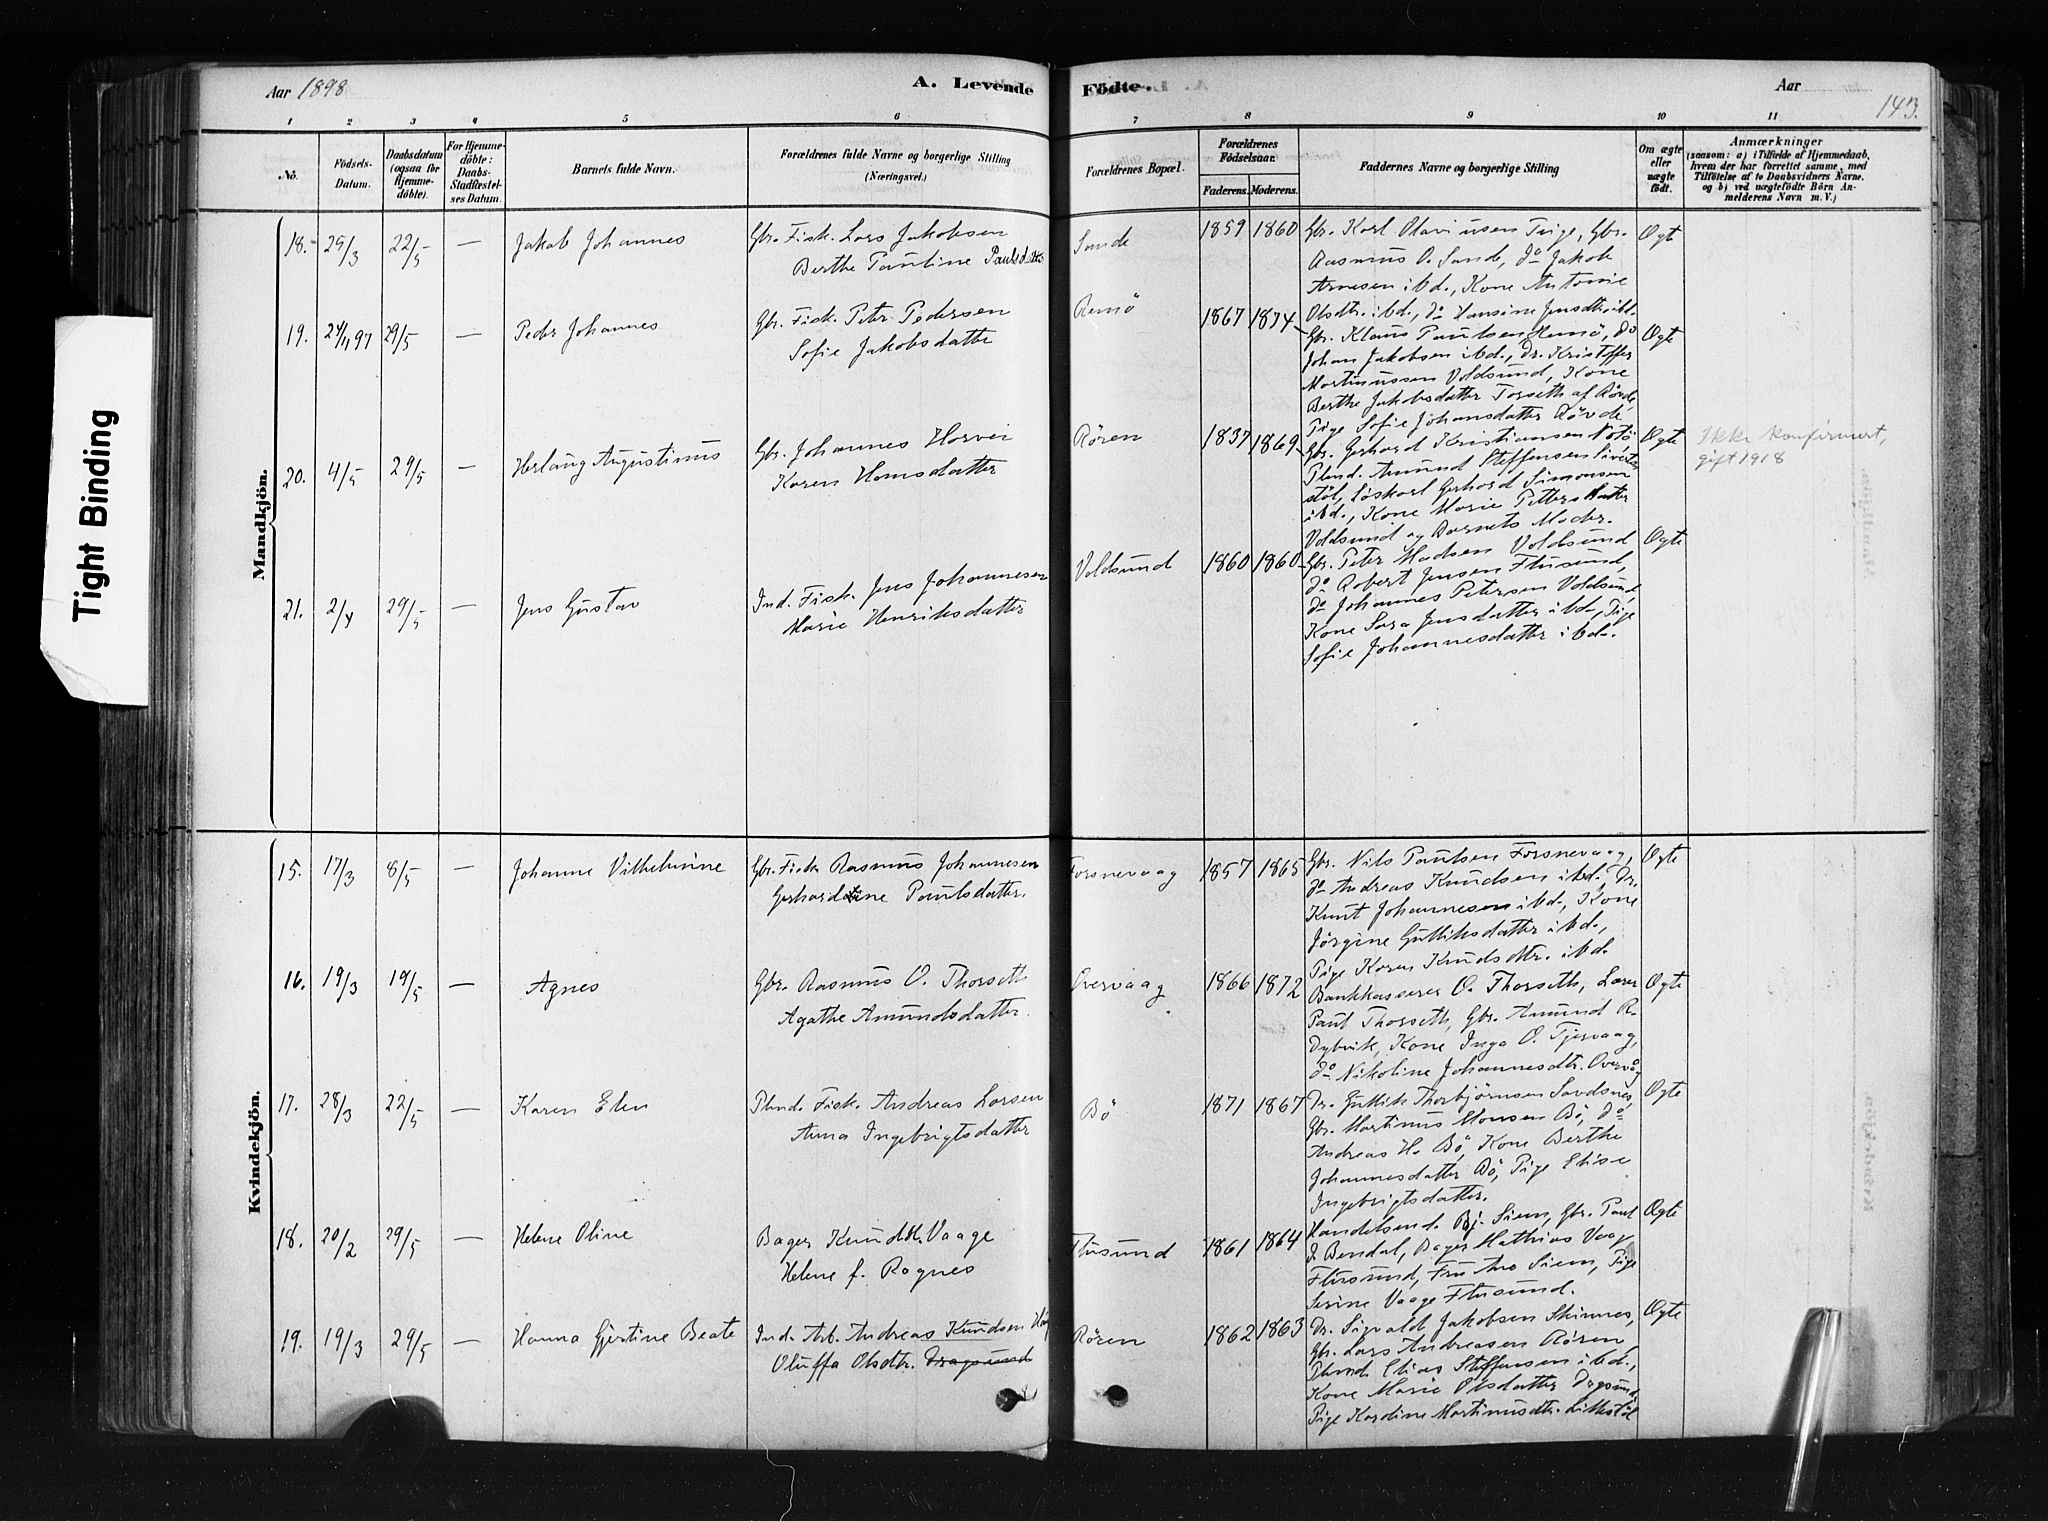 Tight Binding
Aar 1898
A. Levende Födte.
Aar
143.
1 2 3 4 5 6 7 8 9 10 11
No.
Födsels-Datum.
Daabsdatum (ogsaa for Hjemmedöbte).
For Hjemmedöbte: Daabs-Stadfæstelses Datum.
Barnets fulde Navn.
Forældrenes fulde Navne og borgerlige Stilling (Næringsvei.)
Forældrenes Bopæl.
Forældrenes Födselsaar.
Faderens. Moderens.
Faddernes Navne og borgerlige Stilling
Om ægte eller uægte födt.
Anmærkninger
(saasom: a) i Tilfælde af Hjemmedaab, hvem der har forrettet samme, med Tilföielse af to Daabsvidners Navne, og b) ved uægtefödte Börn Anmelderens Navn m. V.)
Mandkjön.
18. 29/3 22/5 — Jakob Johannes
Gbr. Fisk. Lars Jakobsen
Berthe Pauline Paulsdatter
Sande 1859 1860
Gbr. Karl Olaviusen Tige, Gbr.
Rasmus O. Sand, do Jakob
Arnesen ibd., Kone Antonie
Olsdtr. ibd., do Hansine Jensdtr. ibd.
Ægte
19. 24/11 97 29/5 — Peder Johannes
Gbr. Fisk. Peter Pedersen
Sofie Jakobsdatter
Remö 1867 1874
Gbr. Klaus Paulsen Remö, do
Johan Jakobsen ibd., Dr. Kristoffer
Martinussen Voldsund, Kone
Berthe Jakobsdatter Torseth af Rövde,
Pige Sofie Johansdatter Rövde
Ægte
20. 4/5 29/5 — Herlaug Augustinus
Gbr. Johannes Horvei
Karen Hansdatter
Rören 1837 1869
Gbr. Gerhard Kristiansen Notö
Plnd. Amund Steffensen
stöl, Löskarl Gerhard Simonsen
ibd., Kone Marie Pettersdatter
Voldsund og Barnets Moder.
Ægte
Ikke konfirmert,
gift 1918
21. 2/4 29/5 — Jens Gustav
Ind. Fisk. Jens Johannesen
Marie Henriksdatter
Voldsund 1860 1860
Gbr. Peter Madsen Voldsund
do Robert Jensen Flusund,
do Johannes Petersen Voldsund
Kone Sara Jensdatter ibd., Pige
Sofie Johannesdatter ibd.
Ægte
Kvindekjön.
15. 17/3 8/5 — Johanne Vilhelmine
Gbr. Fisk. Rasmus Johannesen
Gerhardine Paulsdatter.
Forsnevaag 1857 1865
Gbr. Nils Paulsen Forsnevaag,
do Andreas Knudsen ibd., Dr.
Knut Johannesen ibd., Kone
Jörgine Guttiksdatter ibd.,
Pige Karen Knudsdtr. ibd.
Ægte
16. 19/3 19/5 — Agnes
Gbr. Rasmus O. Thorseth
Agathe Amundsdatter.
Overvaag 1866 1872
Bankkasserer O. Thorseth, Lærer
Paul Thorseth, Gbr. Amund R.
Dybvik, Kone Inga O. Tjervaag,
do Nikoline Johannesdtr. Overvåg
Ægte
17. 28/3 22/5 — Karen Elen
Plnd. Fisk. Andreas Larsen
Anna Ingebrigtsdatter
Bö 1871 1867
Dr. Guttik Thorbjörnsen Sandsnes,
Gbr. Martinus Monsen Bö, do
Andreas H. Bö, Kone Berthe
Johannesdatter Bö, Pige Elise
Ingebrigtsdatter.
Ægte
18. 20/2 29/5 — Helene Oline
Bager Knud K. Vaage
Helene f. Ragnes
Flusund 1861 1864
Handelsmd. Bj. Siem, Gbr. Paul
J. Bendal, Bager Mathias Vaag
Flusund, Fru Siem, Pige
Serine Vaage Flusund.
Ægte
19. 19/3 29/5 — Hanna Gjertine Beate
Ind. Arb. Andreas Kundsen
Oluffa Olsdtr. Dragsund
Rören 1862 1863
Dr. Sigvald Jakobsen Skinnes,
Gbr. Lars Andreasen Rören,
Plnd. Elias Steffensen ibd.,
Kone Marie Olsdatter Dragsund,
Pige Karoline Martinusdtr. Litlestöl
Ægte